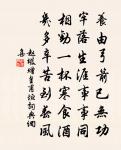 養由弓箭已無功
牢落生涯事事同
相勸一杯寒食酒
幾多辛苦到春風
趙嘏贈皇甫垣詞典網
集